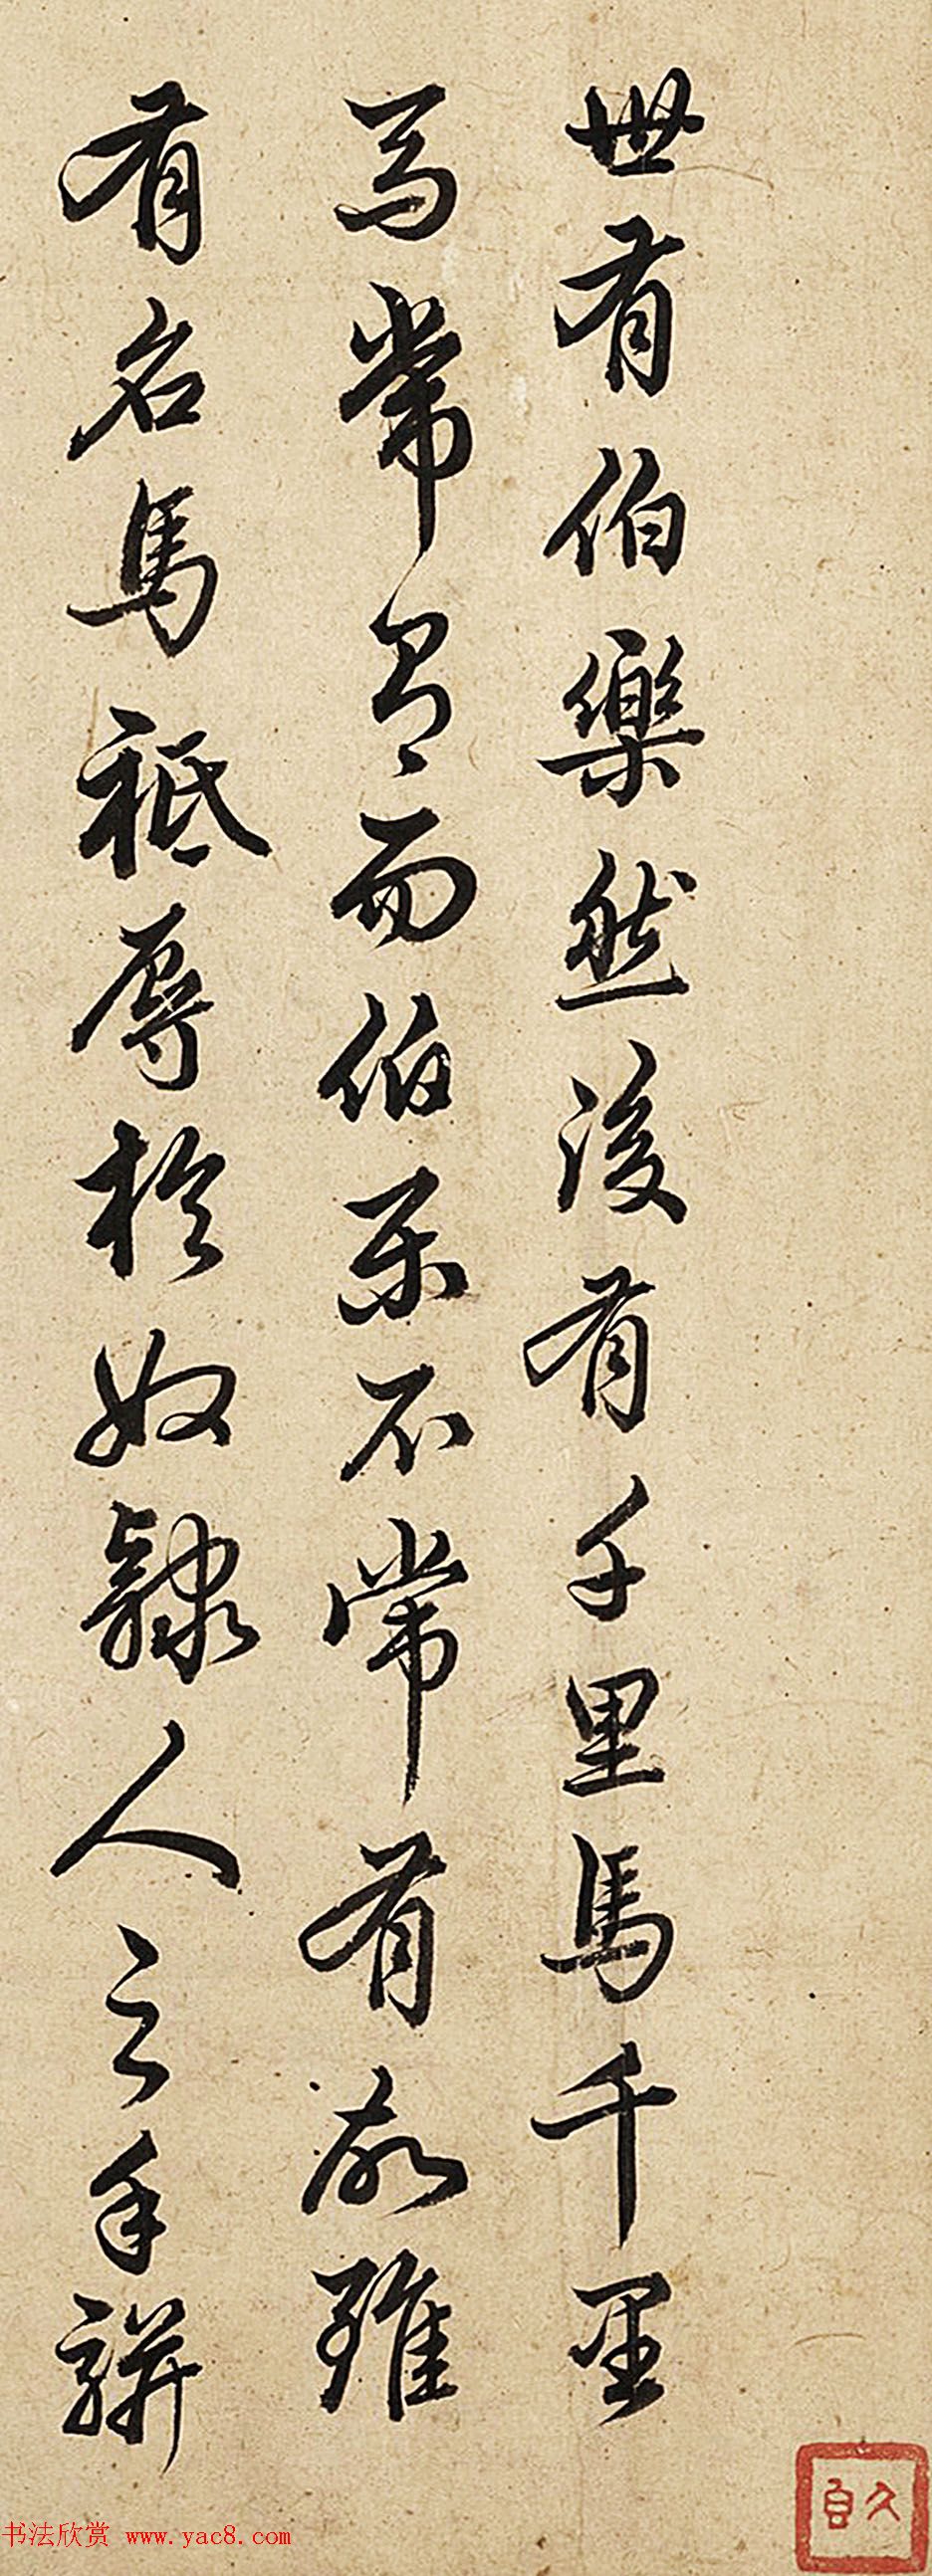 世有伯樂然後有千里馬千里
馬常有而伯樂不常有故雖
有名馬祗辱於奴隸人之手駢
书法欣赏 www.yac8.com